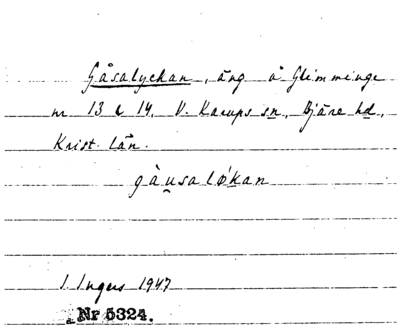 Gåsalyckan, äng å Glimminge
nr 13 & 14. V. Karups sn, Bjäre hd,
Krist. län.
gàusaløkan
I. Ingers 1947
Nr 5324.